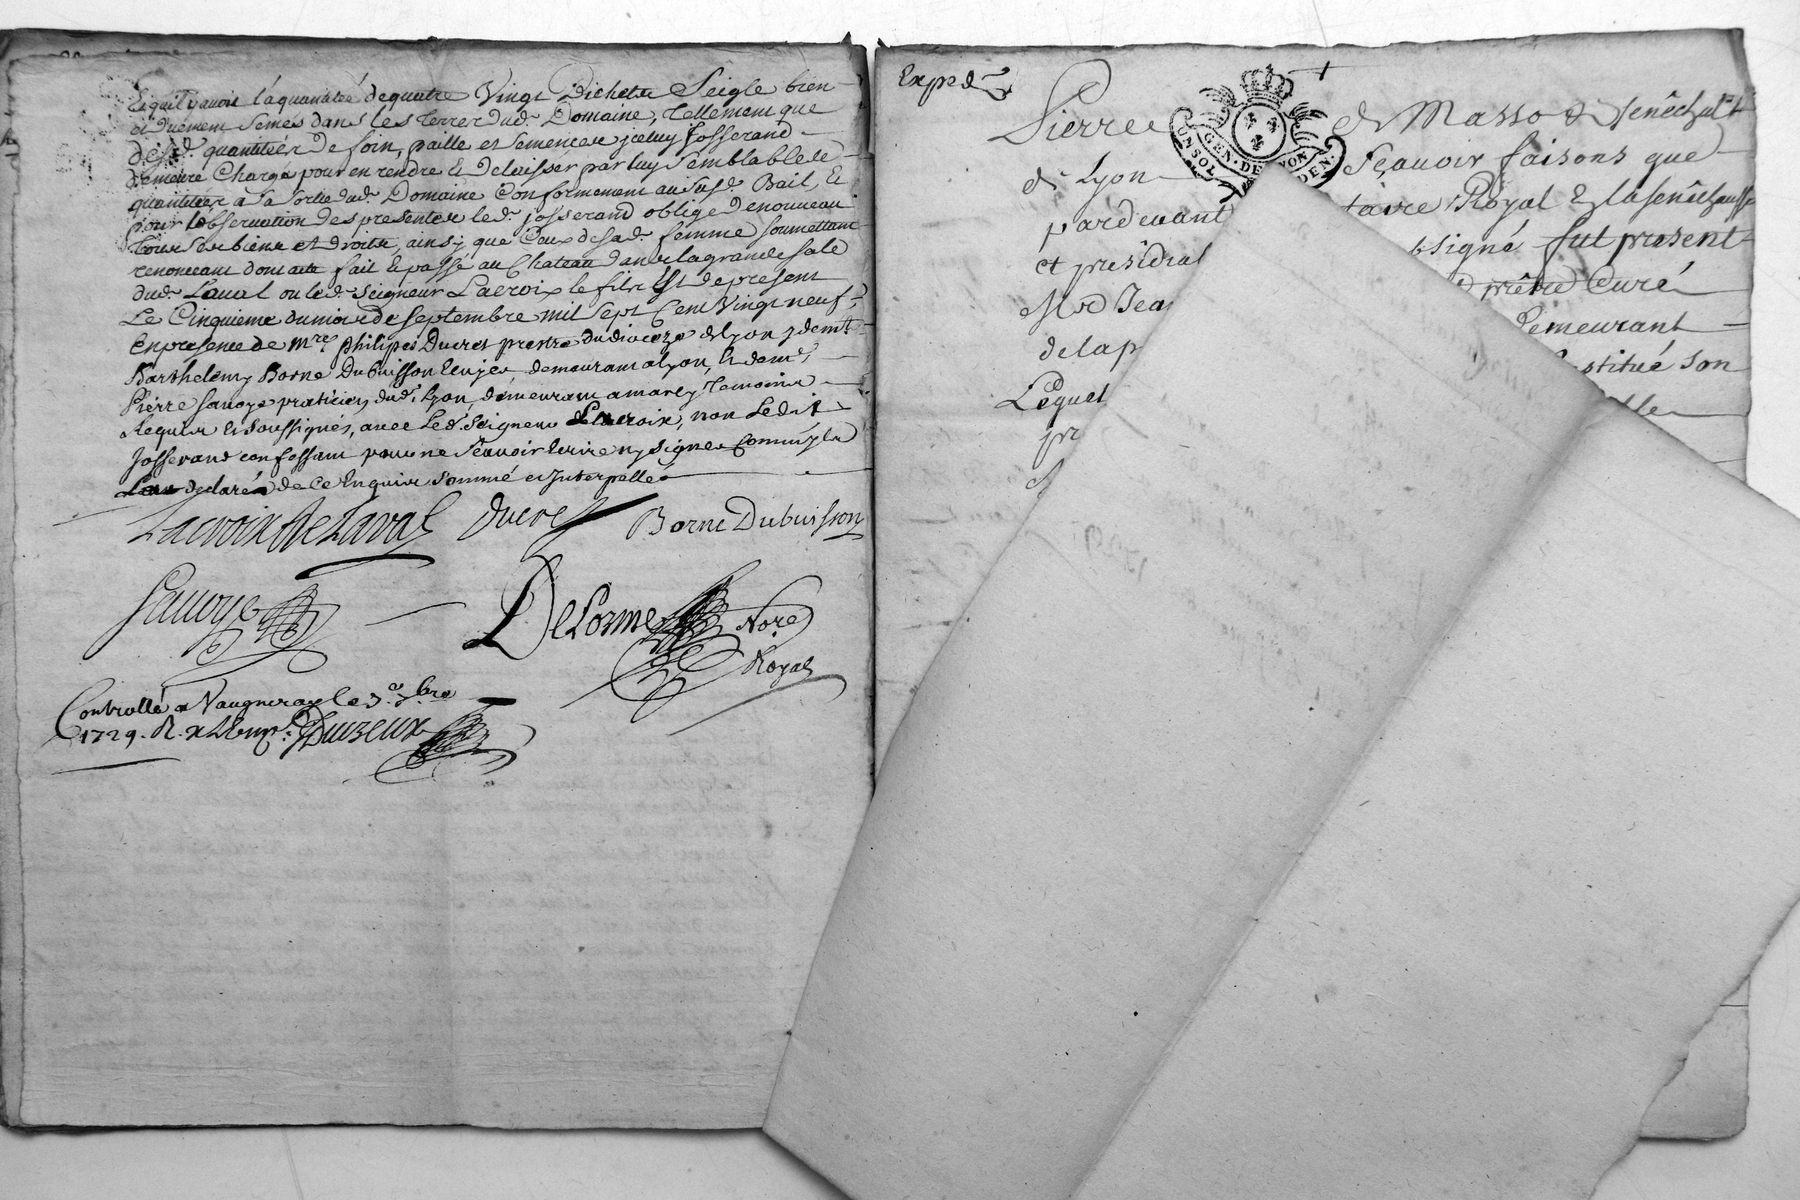 Et qu'il y avoit la quantité de quatre Vingt Bichetz Seigle bien
et Duement Semés dans les terres dud. Domaine, Tellement que
desd. quantitéz De foin, paille et semences jceluy Josserand
demeure Chargé pour en rendre & Delaisser par luy Semblables
quantitéz a Sa Sortie dud. Domaine Conformement au Susd. Bail, &
pour lobservation des presentes led. josserand oblige Denouveau
tous ses biens et droits, ainsy que Ceux de sad. femme soumettant
renonceant dont acte fait & passé au Chateau dans la grande sale
dud. Laval ou led. seigneur Lacroix le fils Est de present
Le Cinquieme du mois de septembre mil sept Cent Vingt neuf
En presence de Mre. philipes Ducret prestre du dioceze de Lyon y demt.
Barthelemy Borne Dubuisson demeurant a Lyon, &
Pierre Sauoye praticien dud. Lyon, demeurant a marcy Temoins
Requis & soussignés, avec Led. Seigneur Delacroix, non Ledit
Josserand confessant pour ne Sçavoir Ecrire ny signer Comme il a
declaré de Ce Enquis sommé et Interpellé
Lacroix De Laval Ducret Borne Dubuisson
Sauoye Delorme Nore
Royal
Controllé a Vaugneray le 7bre
1729. R. Duizeux
Exped
Pierre de Masso Senêchal
GEN. DE LYON
UN SOL DEN.
de Lyon Sçavoir faisons que
pardevant taire Royal & la senêchaussée
et presidial signé fut present
Mre Jea prêtre Curé
de la p Demeurant
Lequel stitué son
pr
1729